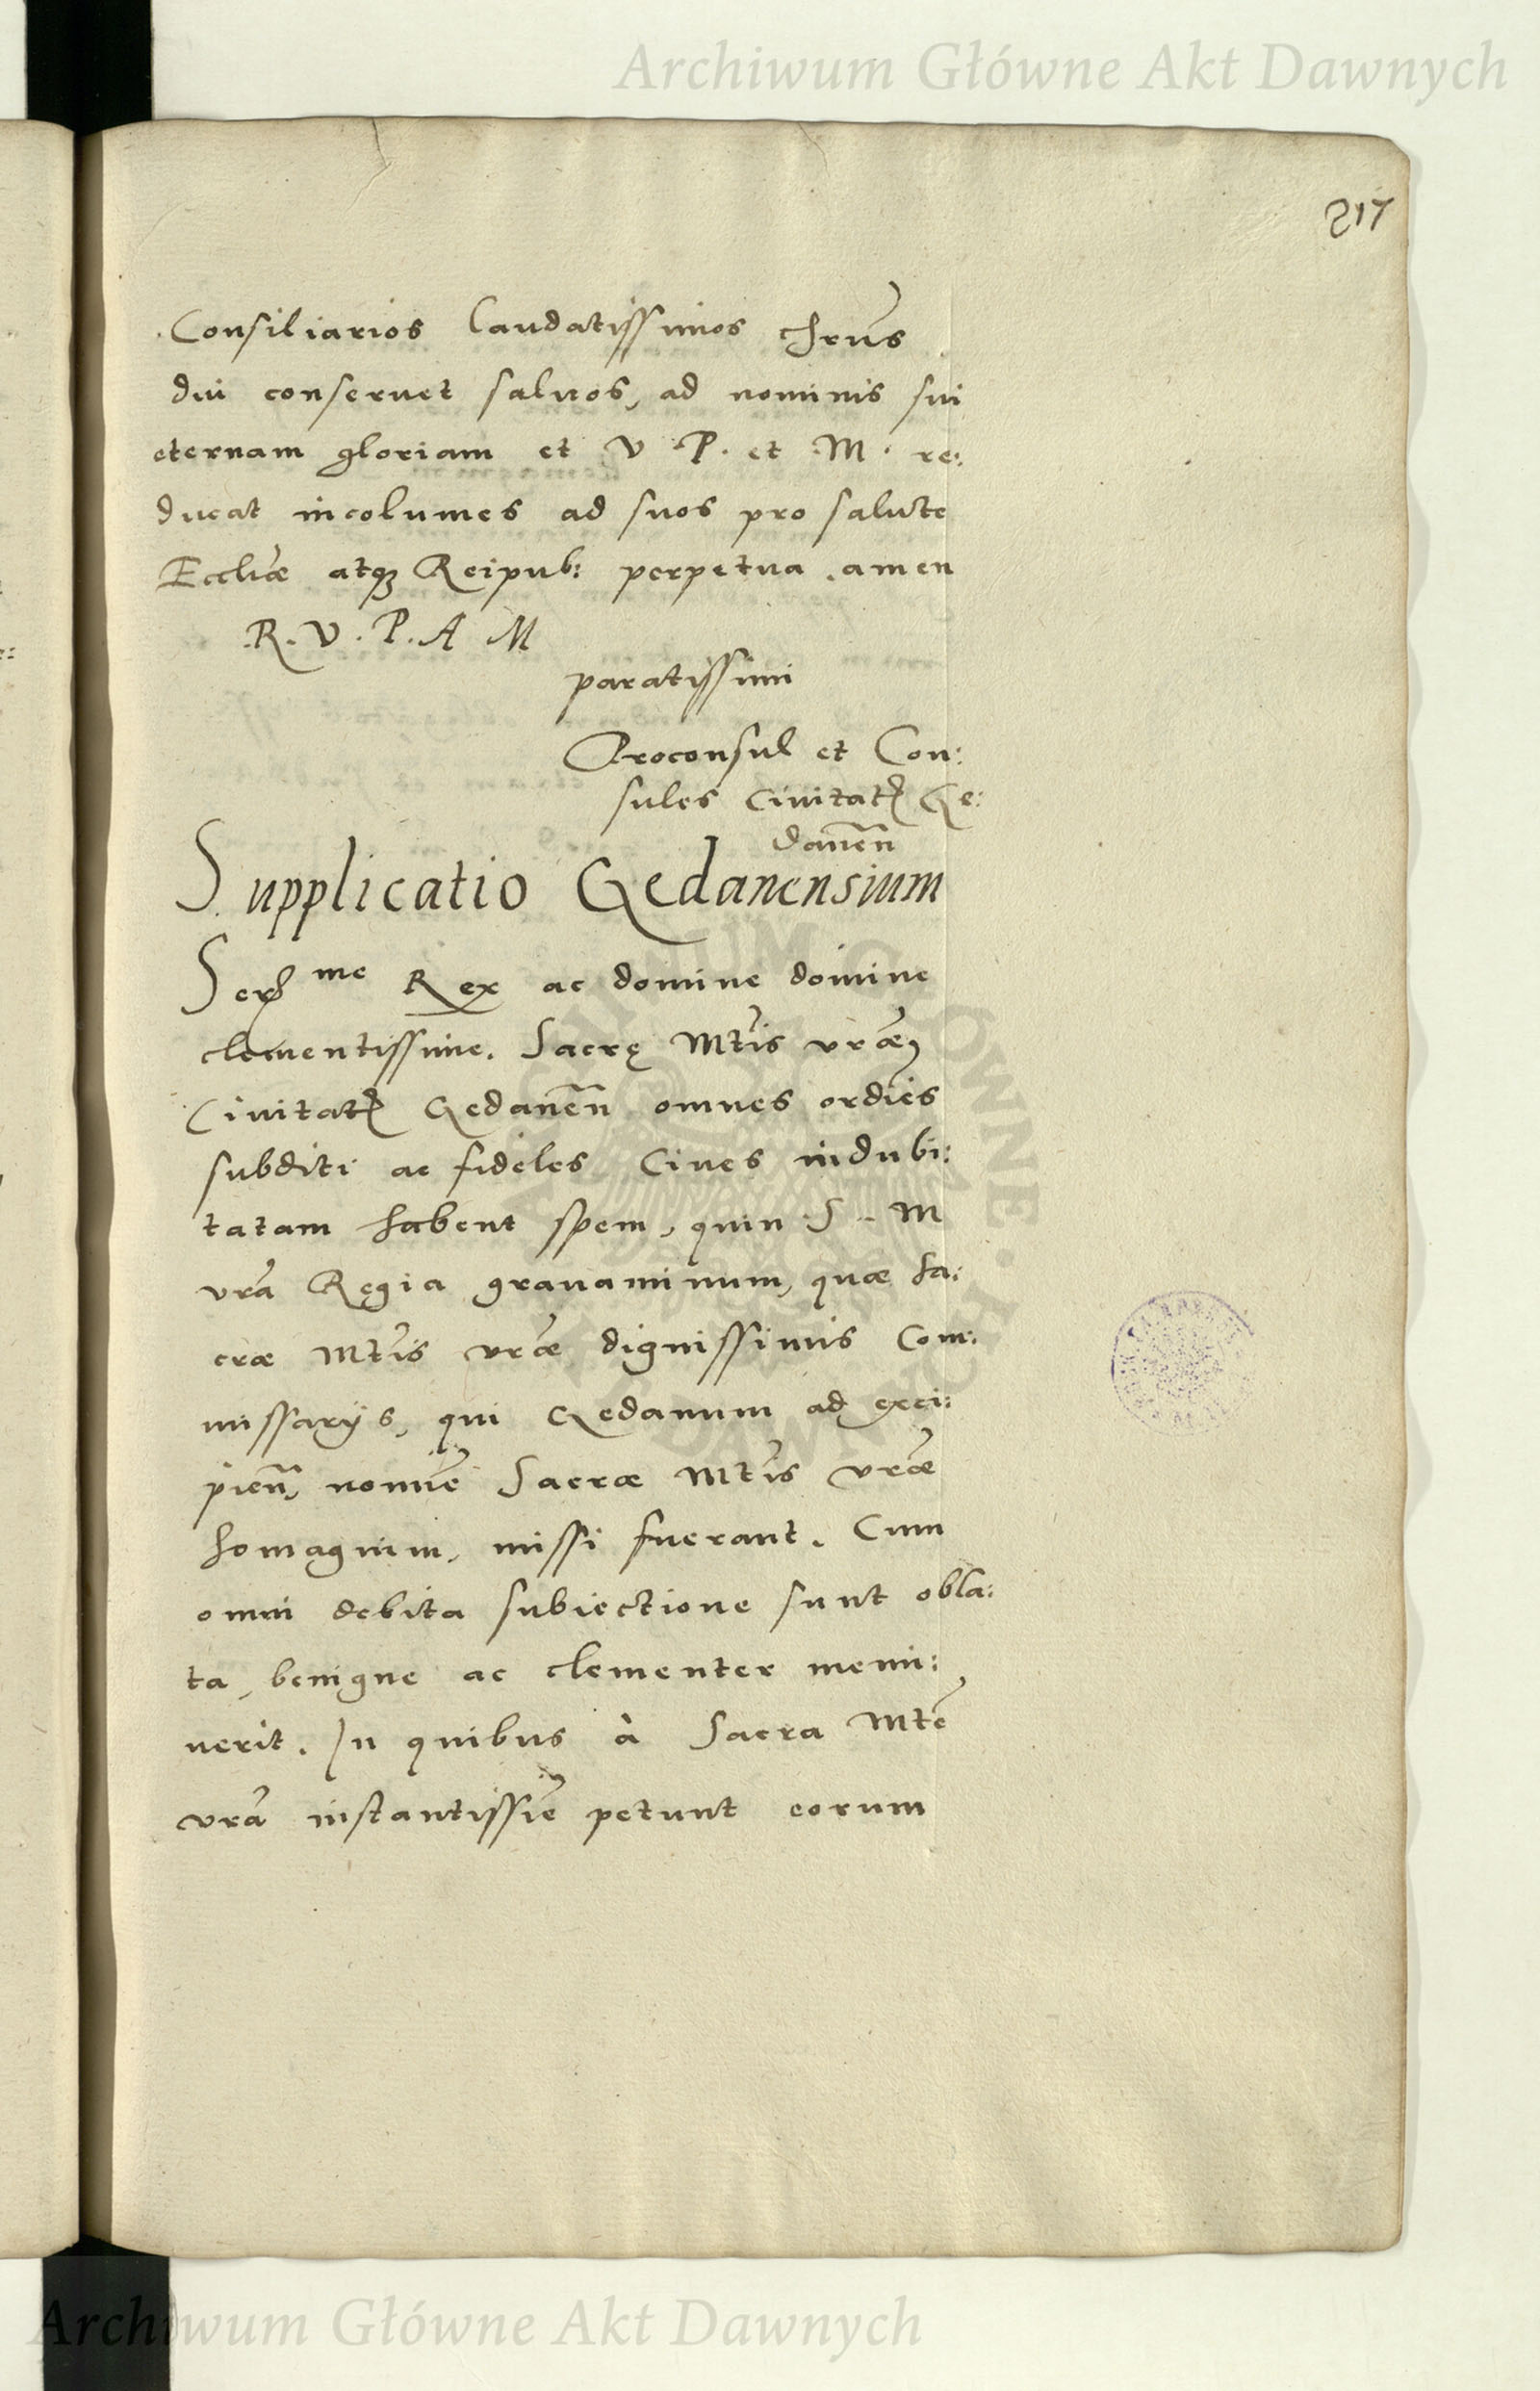 Archiwum Główne Akt Dawnych
217
Consiliarios laudatissimos chrūs
diu conseruet saluos, ad nominis sui
eternam gloriam et V . P . et M . re:
ducat incolumes ad suos pro salute
Eccliæ atqꝫ Reipub: perpetua . amen
R . V . P . A M
paratissimi
Proconsul et Con:
sules Ciuitatꝭ Ge:
danen̄
Supplicatio Gedanensium
Ser me Rex ac domine domine
clementissime . Sacrę Mtis vræ,
Ciuitatꝭ Gedanen̄ omnes ordies
subditi ac fideles Ciues indubi:
tatam habent spem, quin S .. M
vrā Regia grauaminum, quæ Sa:
cræ Mtis vræ dignissimis Com:
missarijs, qui Gedanum ad exci:
pien̄, nomīe Sacræ Mtis vræ
homagium, missi fuerant . Cum
omni debita subiectione sunt obla:
ta, benigne ac clementer memi:
nerit . In quibus à Sacra Mtē
vrā instantissīe petunt eorum
Archiwum Główne Akt Dawnych